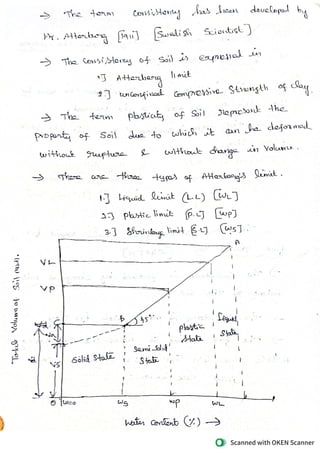 → The term consistency has been developed by
Mr. Atterberg [1911] [Swedish Scientist]
→ The consistency of Soil is expressed in
1.] Atterberg limit
2.] unconfined compressive Strength of clay.
→ The term plasticity of Soil represent the
property of Soil due to which it can be deformed
without rupture & without change in Volume.
→ There are three types of Atterberg's limit.
1.] Liquid limit (L.L) [WL]
2.] plastic limit [P.L] [wp]
3.] Shrinkage limit [S.L] [ws].
Total Volume of Soil mass.
A
VL
VP
B
45°
Solid State
Semi-solid
State
plastic
State
liquid
State
0
ws
wp
WL
Water Content (%) →
Scanned with OKEN Scanner